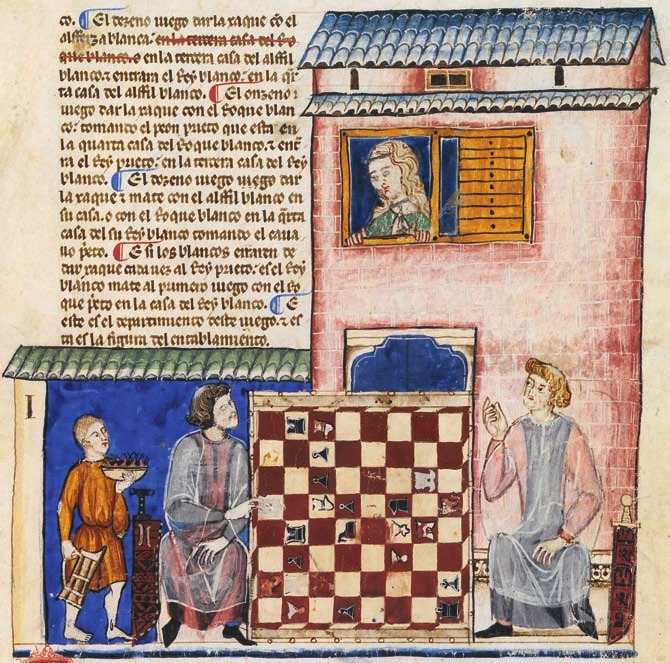 co. ¶ El dezeno iuego dar la xaque cõ el
alfferza blanca. en la tercera casa del Ro
que blanco. o en la tercera casa del alffil
blanco. ⁊ entrara el Rey blanco. en la q̃r
ta casa del alffil blanco. ¶ El onzeno
iuego dar la xaque con el Roque blan
co. tomando el peon prieto que esta en
la quarta casa del Roque blanco. ⁊ entra
ra el Rey prieto. en la tercera casa del Rey
blanco. ¶ El dozeno iuego dar
la xaque ⁊ mate con el alffil blanco en
su casa. o con el Roque blanco en la q̃rta
casa del su Rey blanco tomando el caua
llo p̃eto. ¶ E si los blancos erraren de
dar xaque cada uez al Rey prieto. es el Rey
blanco mate al primero iuego con el Ro
que p̃eto en la casa del Rey blanco. ¶ E
este es el departimiento deste iuego. ⁊ es
ta es la figura del entablamiento.
I